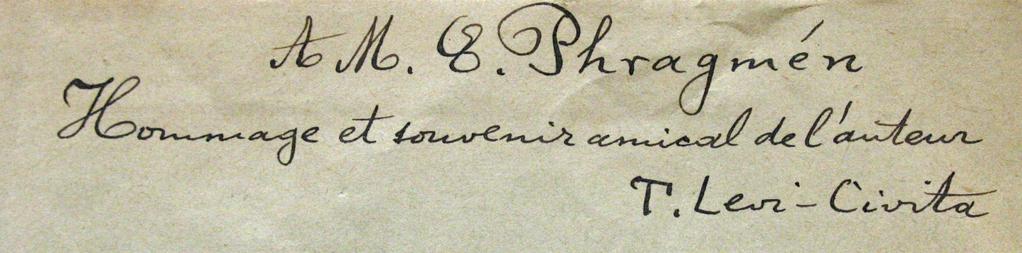 A M. E. Phragmén
Hommage et souvenir amical de l'auteur
T. Levi-Civita